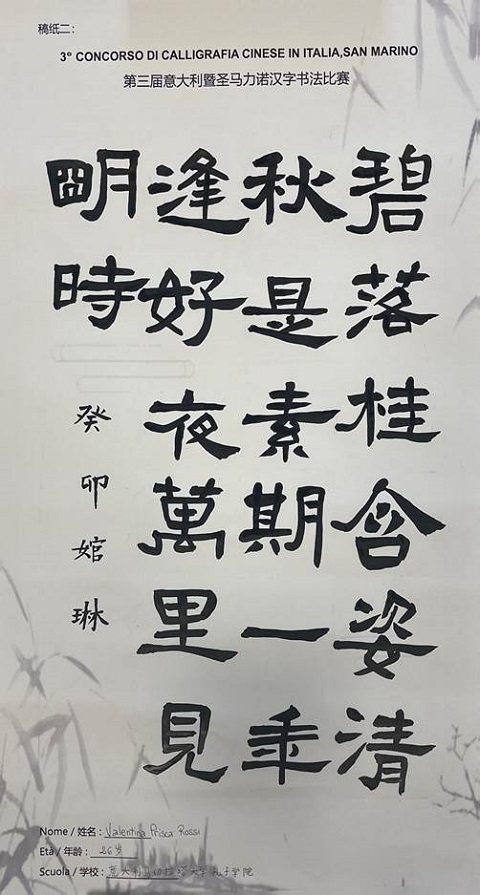 稿纸二：
3° CONCORSO DI CALLIGRAFIA CINESE IN ITALIA,SAN MARINO
第三届意大利暨圣马力诺汉字书法比赛
碧落桂含姿清
秋是素期一年
逢好夜萬里見
朙時
癸卯婠琳
Nome / 姓名 : Valentina Prisca Rossi
Età / 年龄 : 26岁
Scuola / 学校 : 意大利马切拉塔大学孔子学院